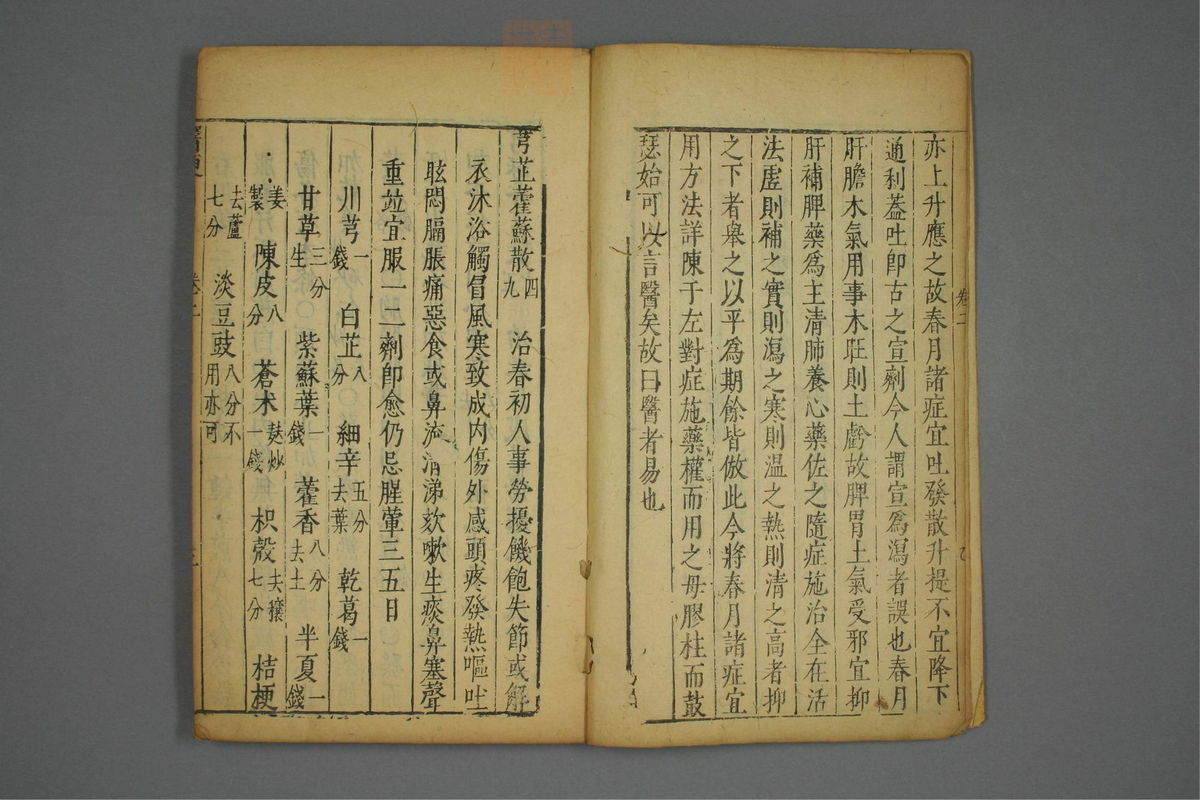 亦上升應之故春月諸症宜吐發散升提不宜降下
通利葢吐即古之宣劑今人謂宣爲瀉者誤也春月
肝膽木氣用事木旺則土虧故脾胃土氣受邪宜抑
肝補脾藥爲主清肺養心藥佐之隨症施治全在活
法虛則補之實則瀉之寒則温之熱則清之高者抑
之下者舉之以平爲期餘皆倣此今將春月諸症宜
用方法詳陳于左對症施藥權而用之毋膠柱而鼓
瑟始可以言醫矣故曰醫者易也
卷二
芎芷藿蘇散四九 治春初人事勞擾饑飽失節或解
衣沐浴觸冒風寒致成内傷外感頭疼發熱嘔吐
眩悶膈脹痛惡食或鼻流清涕欬嗽生痰鼻塞聲
重竝宜服一二劑即愈仍忌腥葷三五日
川芎一錢 白芷八分 細辛五分去葉 乾葛一錢
甘草三分生 紫蘇葉一錢 藿香八分去土 半夏一錢
姜製 陳皮八分 蒼术麸炒一錢 枳殼去穰七分 桔梗
去蘆七分 淡豆豉八分不用亦可
卷二